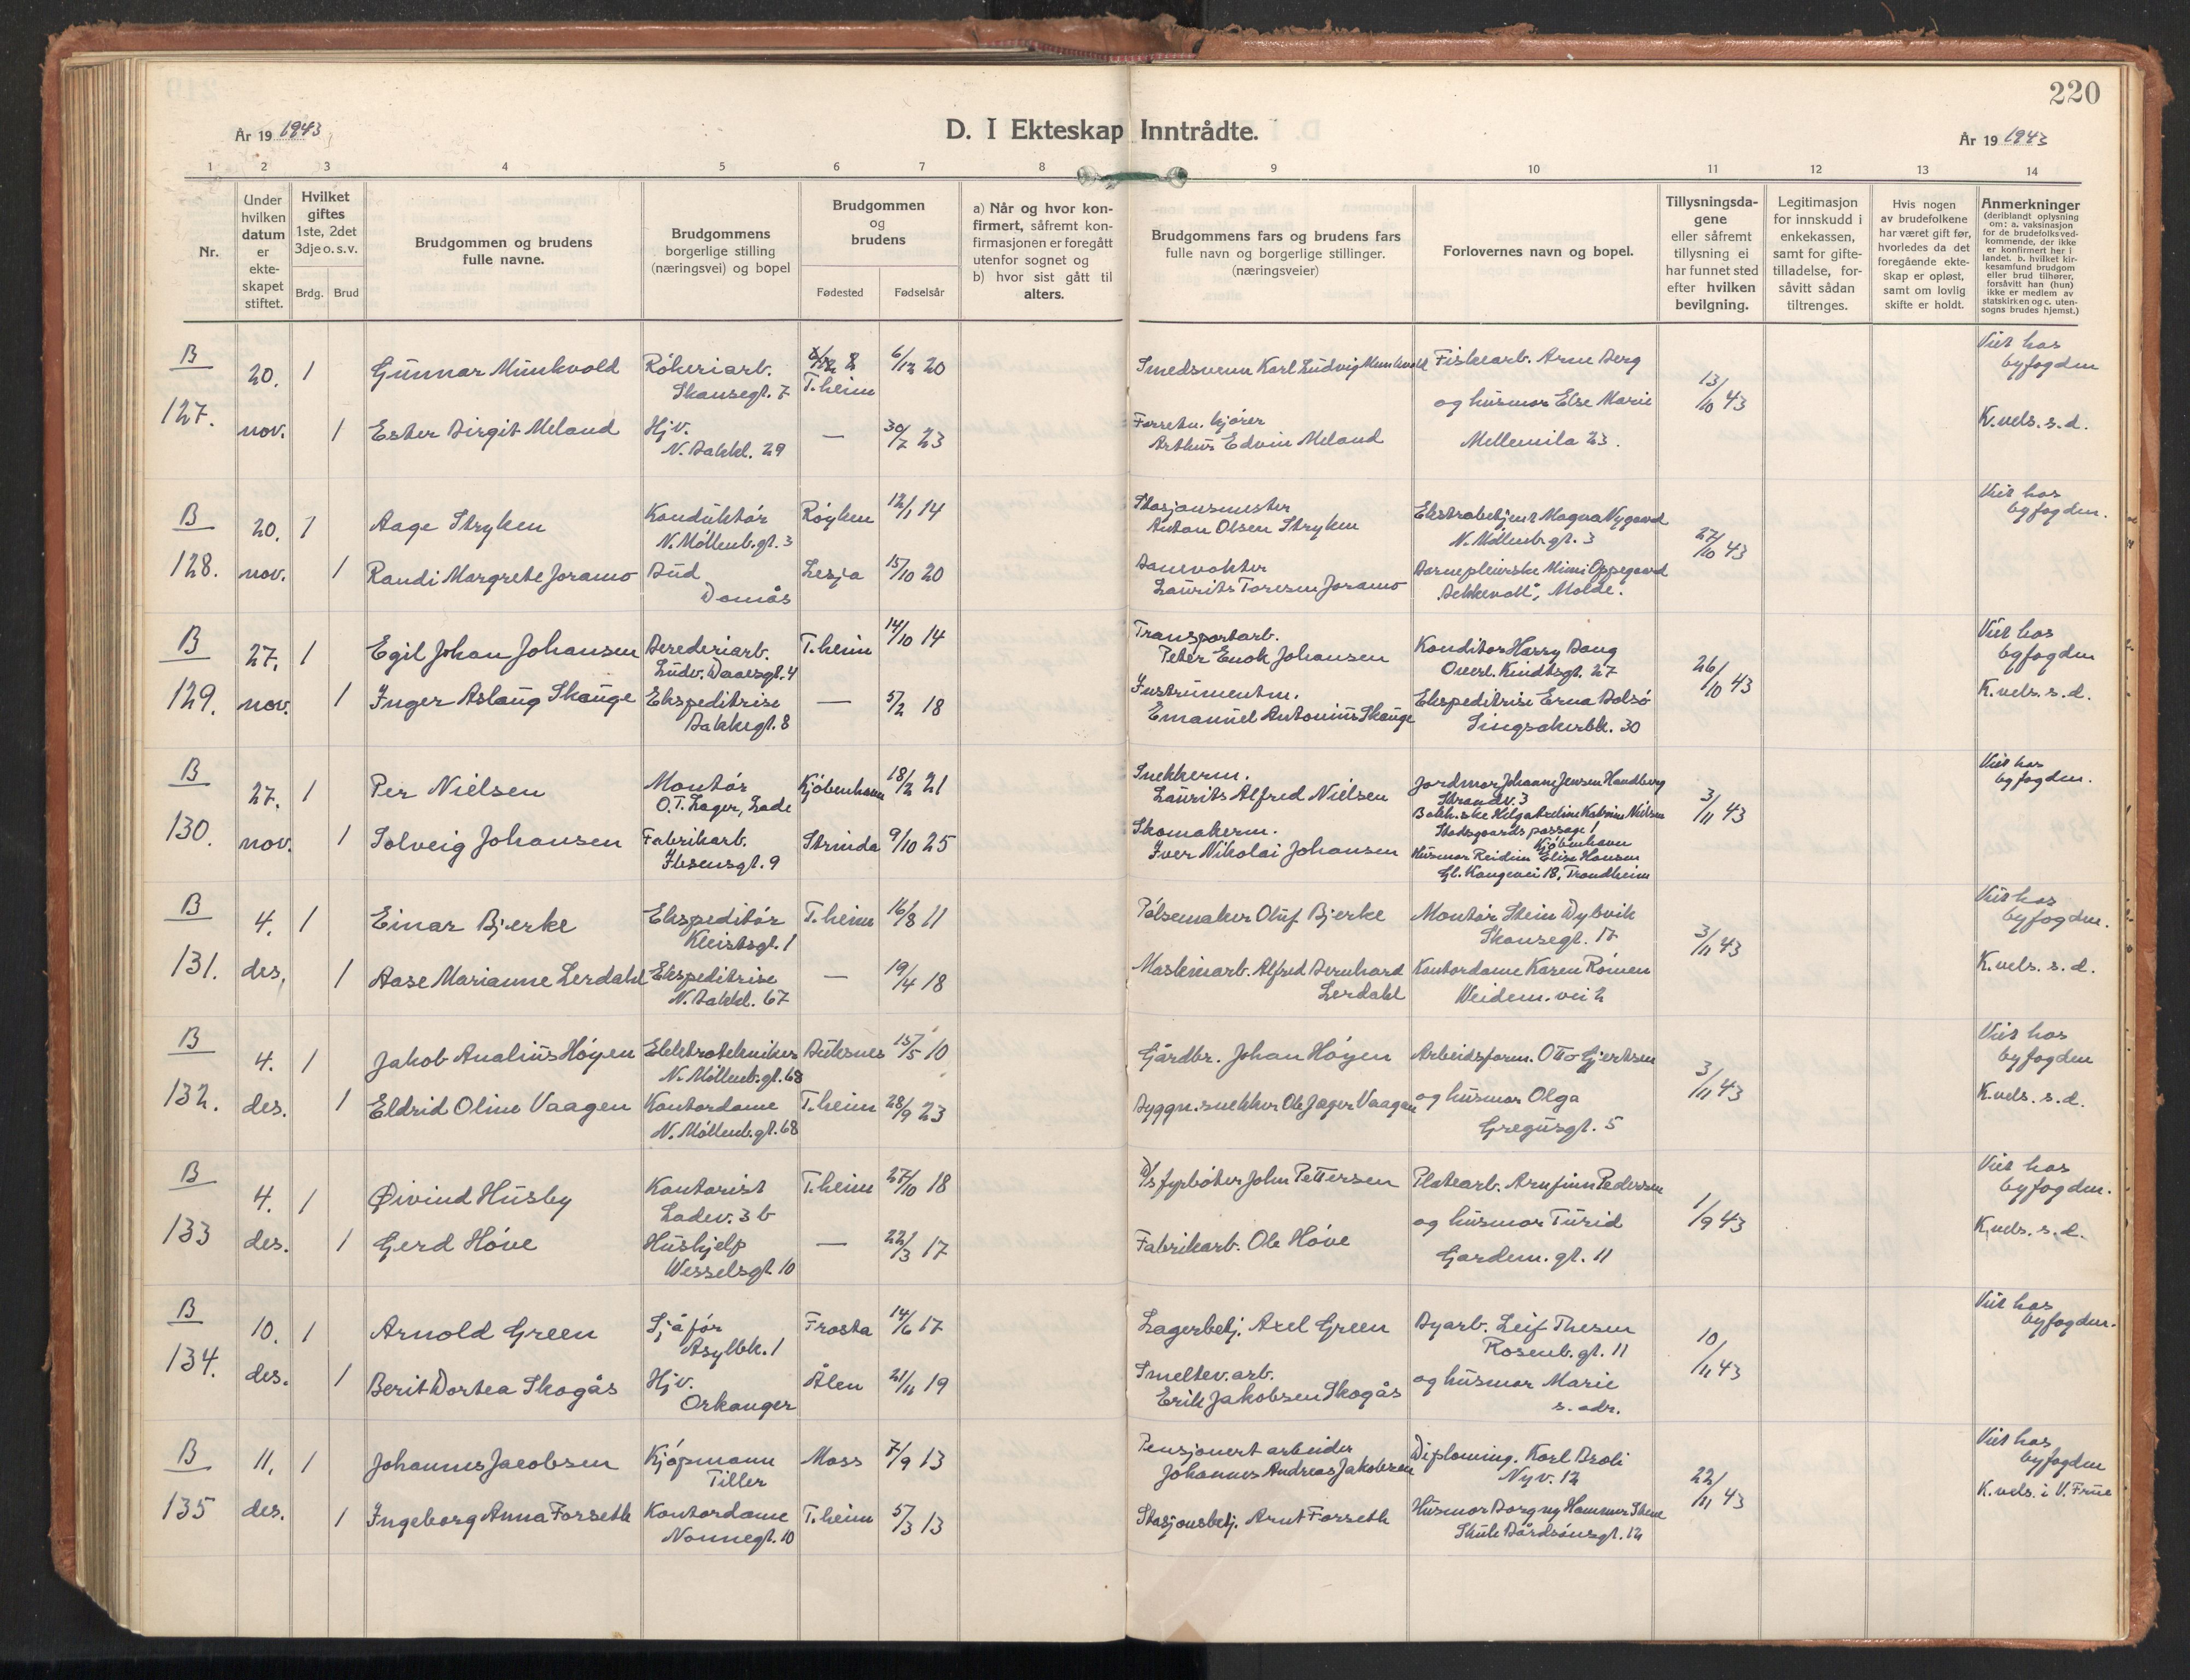 220
År 19 1943
D. I Ekteskap Inntrådte.
År 19 1943
1 2 3 4 5 6 7 8 9 10 11 12 13 14
Nr.
Under hvilken datum er ekte- skapet stiftet.
Hvilket giftes 1ste, 2det 3dje o. s. v.
Brdg. Brud
Brudgommen og brudens fulle navne.
Brudgommens borgerlige stilling (næringsvei) og bopel
Brudgommen og brudens
Fødested Fødselsår
a) Når og hvor kon- firmert, såfremt kon- firmasjonen er foregått utenfor sognet og b) hvor sist gått til alters.
Brudgommens fars og brudens fars fulle navn og borgerlige stillinger. (næringsveier)
Forlovernes navn og bopel.
Tillysningsda- gene eller såfremt tillysning ei har funnet sted efter hvilken bevilgning.
Legitimasjon for innskudd i enkekassen, samt for gifte- tilladelse, for- såvitt sådan tiltrenges.
Hvis nogen av brudefolkene har været gift før, hvorledes da det foregående ekte- skap er opløst, samt om lovlig skifte er holdt.
Anmerkninger (deriblandt oplysning om: a. vaksinasjon for de brudefolks ved- kommende, der ikke er konfirmert her i landet. b. hvilket kir- kesamfund brudgom eller brud tilhører, forsåvitt han (hun) ikke er medlem av statskirken og c. uten- sogns brudes hjemst.)
B 127. 20. nov. 1 Gunnar Munkvold Røkeriarb. Skansegt. 7 T.heim 6/12 20 Smedsvenn Karl Ludvig Munkvold Fiskearb. Arne Berg 13/10 43 Viet hos byfogden
1 Ester Birgit Meland Hjv. N. Bakkl. 29 — 30/7 23 Forretn. kjører Arthur Edvin Meland og husmor Else Marie Mellemila 23. K.vels. s. d.
B 128. 20. nov. 1 Aage Stryken Konduktør N. Møllenb.gt. 3 Røyken 12/1 14 Stasjonsmester Anton Olsen Stryken Ekstrabetjent Magna Nygaard N. Møllenb.gt. 3 27/10 43 Viet hos byfogden.
1 Randi Margrete Joramo Bud Domås Lesja 15/10 20 Banevokter Laurits Toresen Joramo Barnepleierske Mimi Oppegaard "Bekkevoll", Molde.
B 129. 27. nov. 1 Egil Johan Johansen Berederiarb. Ludv. Daaesgt. 4 T.heim 14/10 14 Transportarb. Peter Enok Johansen Konditor Harry Baug Overl. Kindtsgt. 27 26/10 43 Viet hos byfogden
1 Inger Aslaug Skauge Ekspeditrise Bakkegt. 8 — 5/2 18 Instrumentm. Emanuel Antonius Skauge Ekspeditrise Erna Dolsø Singsakerbk. 30 K.vels. s. d.
B 130. 27. nov. 1 Per Nielsen Montør O.T. Lager, Lade Kjøbenhavn 18/2 21 Snekkerm. Laurits Alfred Nielsen Jordmor Johanne Jensen Handberg Strandv. 3 3/11 43 Viet hos byfogden.
Helga Axeline Katrine Nielsen Stadsgaards passage 1 Kjøbenhavn
1 Solveig Johansen Fabrikarb. Ibsensgt. 9 Strinda 9/10 25 Skomakerm. Iver Nikolai Johansen Husmor Reidun Elise Hansen Gl. Kongevei 18, Trondheim
B 131. 4. des. 1 Einar Bjerke Ekspeditør Kleistsgt. 1 T.heim 16/8 11 Pølsemaker Oluf Bjerke Montør Stein Dybvik Skansegt. 17 3/11 43 Viet hos byfogden.
1 Aase Marianne Lerdahl Ekspeditrise N. Bakkl. 67 — 19/4 18 Maskinarb. Alfred Bernhard Lerdahl Kontordame Karen Rømen Weidem. vei 2 K.vels. s. d.
B 132. 4. des. 1 Jakob Analius Høyen Elektrotekniker N. Møllenb.gt. 68 Buksnes 15/5 10 Gårdbr. Johan Høyen Arbeidsform. Otto Gjertsen 3/11 43 Viet hos byfogden
1 Eldrid Oline Vaagen Kontordame N. Møllenb.gt. 68 T.heim 28/9 23 Byggn.snekker Ole Jager Vaagan og husmor Olga Gregusgt. 5 K.vels. s. d.
B 133 4. des. 1 Øivind Husby Kontorist Ladev. 3 b T.heim 27/10 18 D/s fyrbøter John Pettersen Platearb. Arnfinn Pedersen 1/9 43 Viet hos byfogden.
1 Gerd Høve Hushjelp Wesselsgt. 10 — 22/3 17 Fabrikarb. Ole Høve og husmor Turid Gardem. gt. 11 K.vels. s. d.
B 134. 10. des. 1 Arnold Green Sjåfør Asylbk. 1 Frosta 14/6 17 Lagerbetj. Axel Green Byarb. Leif Thesen Rosenb. gt. 11 10/11 43 Viet hos byfogden.
1 Berit Dortea Skogås Hjv. Orkanger Ålen 21/11 19 Smeltev. arb. Erik Jakobsen Skogås og husmor Marie s. adr.
B 135 11. des. 1 Johannes Jacobsen Kjøpmann Tiller Moss 7/9 13 Pensjonert arbeider Johannes Andreas Jakobsen Diploming. Karl Broli Nyv. 12 22/11 43 Viet hos byfogden
1 Ingeborg Anna Forseth Kontordame Nonnegt. 10 T.heim 5/3 13 Stasjonsbetj. Arnt Forseth Husmor Borgny Hammer Stene Skule Bårdsønsgt. 12 K.vels. i V. Frue